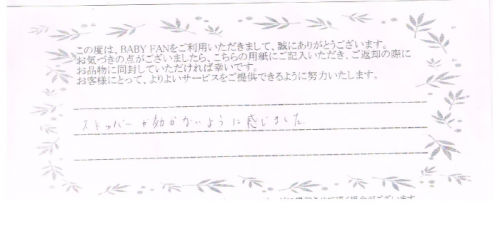 この度は、BABY FANをご利用いただきまして、誠にありがとうございます。
お気づきの点がございましたら、こちらの用紙にご記入いただき、ご返却の際に
お品物に同封していただければ幸いです。
お客様にとって、よりよいサービスをご提供できるように努力いたします。
ストッパーが効かないように感じました